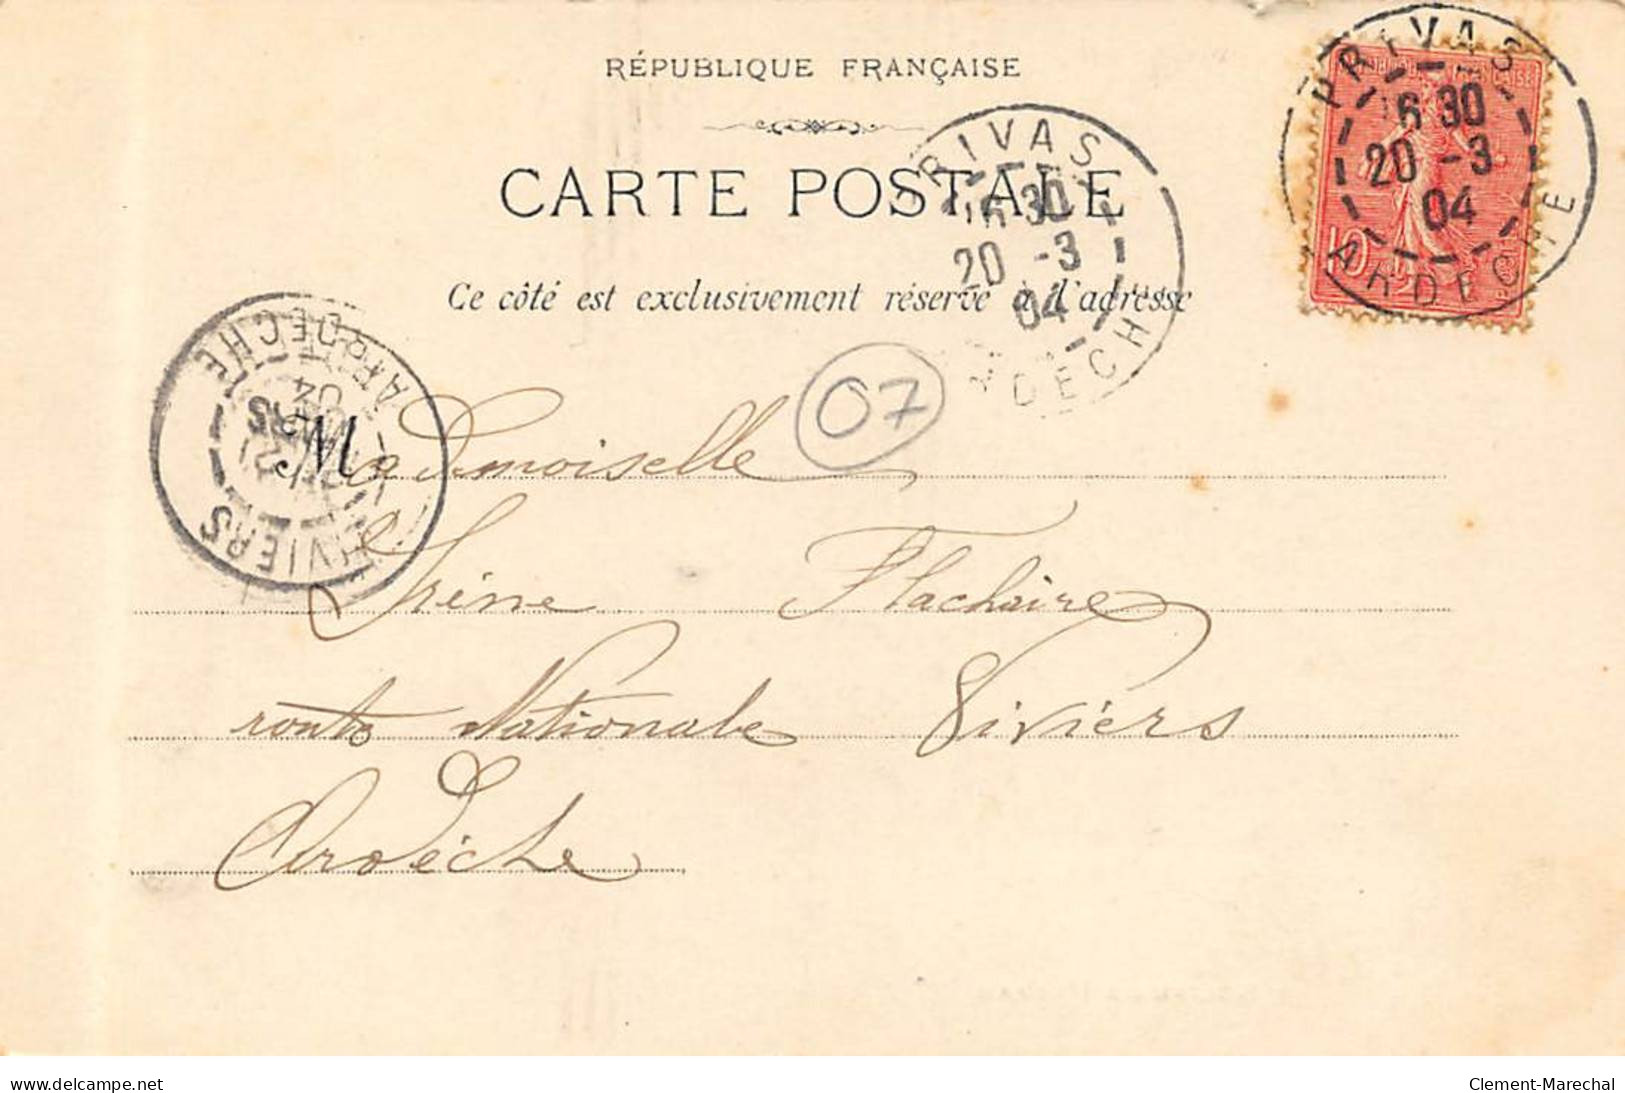 RÉPUBLIQUE FRANÇAISE
CARTE POSTALE
Ce côté est exclusivement réservé à l'adresse
PRIVAS
16 30
20 -3
04
ARDECHE
RIVAS
16 30
20 -3
04
DECH
10
07
VIVIERS
04
ARDECHE
Mademoiselle
Irène Flachaire
route Nationale Viviers
Ardèche
www.delcampe.net
Clement-Marechal